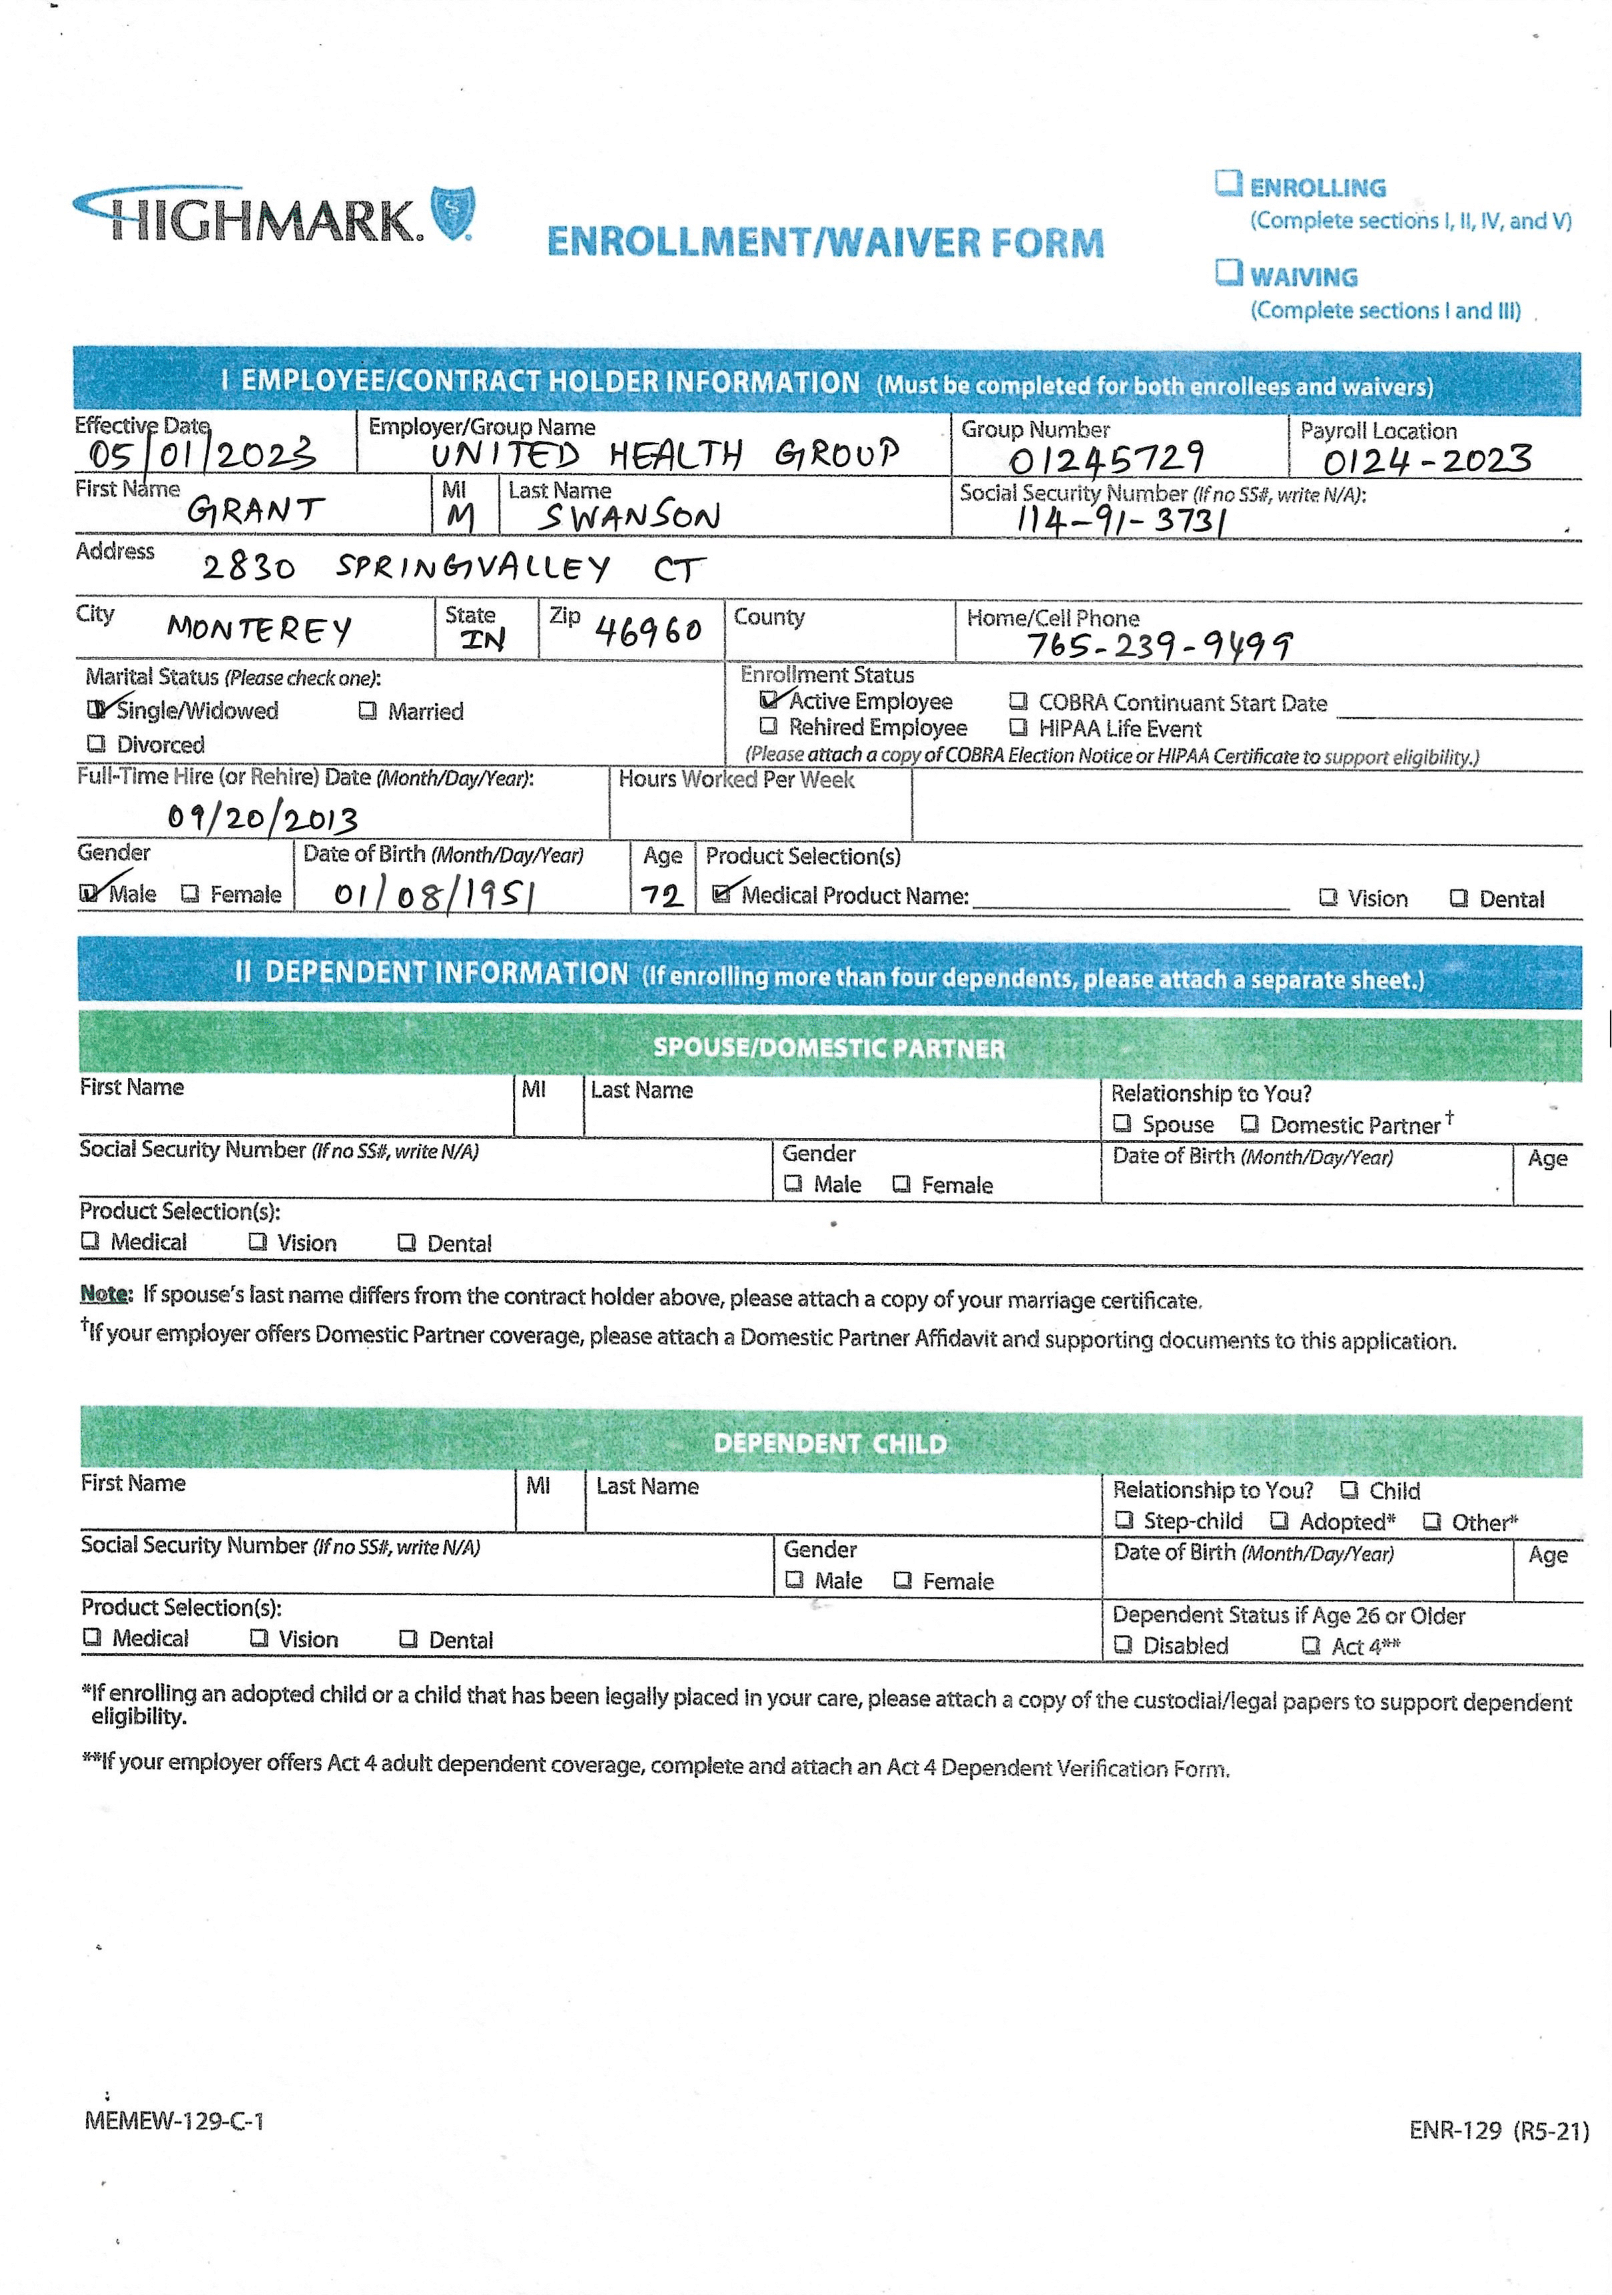 HIGHMARK.
ENROLLMENT/WAIVER FORM
☐ ENROLLING
(Complete sections I, II, IV, and V)
☐ WAIVING
(Complete sections I and III)
I EMPLOYEE/CONTRACT HOLDER INFORMATION (Must be completed for both enrollees and waivers)
Effective Date Employer/Group Name Group Number Payroll Location
05/01/2023 UNITED HEALTH GROUP 01245729 0124-2023
First Name MI Last Name Social Security Number (If no SS#, write N/A):
GRANT M SWANSON 114-91-3731
Address 2830 SPRINGVALLEY CT
City MONTEREY State IN Zip 46960 County Home/Cell Phone 765-239-9499
Marital Status (Please check one): Enrollment Status
☑ Single/Widowed ☐ Married ☑ Active Employee ☐ COBRA Continuant Start Date
☐ Divorced ☐ Rehired Employee ☐ HIPAA Life Event
(Please attach a copy of COBRA Election Notice or HIPAA Certificate to support eligibility.)
Full-Time Hire (or Rehire) Date (Month/Day/Year): Hours Worked Per Week
09/20/2013
Gender Date of Birth (Month/Day/Year) Age Product Selection(s)
☑ Male ☐ Female 01/08/1951 72 ☑ Medical Product Name: ☐ Vision ☐ Dental
II DEPENDENT INFORMATION (If enrolling more than four dependents, please attach a separate sheet.)
SPOUSE/DOMESTIC PARTNER
First Name MI Last Name Relationship to You?
☐ Spouse ☐ Domestic Partner†
Social Security Number (If no SS#, write N/A) Gender Date of Birth (Month/Day/Year) Age
☐ Male ☐ Female
Product Selection(s):
☐ Medical ☐ Vision ☐ Dental
Note: If spouse's last name differs from the contract holder above, please attach a copy of your marriage certificate.
†If your employer offers Domestic Partner coverage, please attach a Domestic Partner Affidavit and supporting documents to this application.
DEPENDENT CHILD
First Name MI Last Name Relationship to You? ☐ Child
☐ Step-child ☐ Adopted* ☐ Other*
Social Security Number (If no SS#, write N/A) Gender Date of Birth (Month/Day/Year) Age
☐ Male ☐ Female
Product Selection(s): Dependent Status if Age 26 or Older
☐ Medical ☐ Vision ☐ Dental ☐ Disabled ☐ Act 4**
*If enrolling an adopted child or a child that has been legally placed in your care, please attach a copy of the custodial/legal papers to support dependent
eligibility.
**If your employer offers Act 4 adult dependent coverage, complete and attach an Act 4 Dependent Verification Form.
MEMEW-129-C-1
ENR-129 (R5-21)